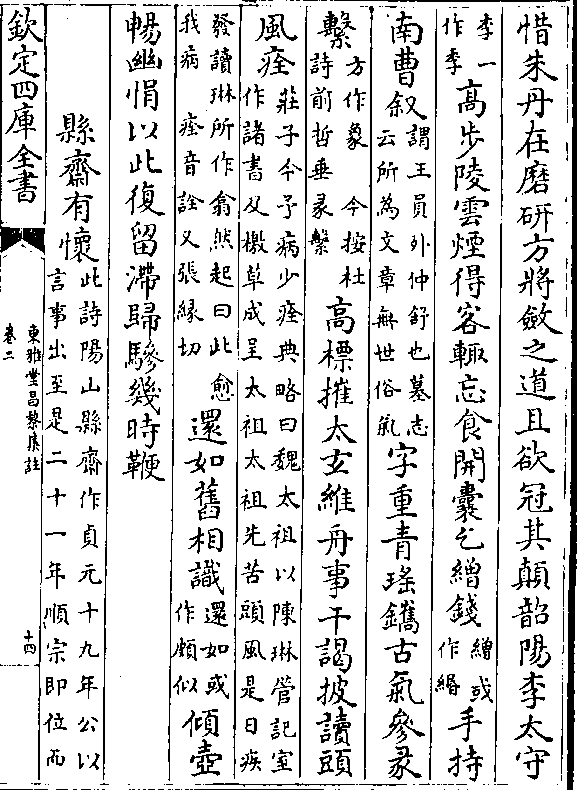 惜朱丹在磨研方將斂之道且欲冠其顛韶陽李太守
李一作季高步陵雲煙得客輒忘食開囊乞繒錢繒或作緡手持
南曹叙謂王員外仲舒也墓志云所為文章無世俗氣字重青瑤鐫古氣參彖
繫方作象 今按杜詩前哲垂彖繫高標摧太玄維舟事干謁披讀頭
風痊莊子今予病少痊典略曰魏太祖以陳琳管記室作諸書及檄草成呈太祖太祖先苦頭風是日疾
發讀琳所作翕然起曰此愈我病 痊音詮又張縁切還如舊相識還如或作頗似傾壺
暢幽悁以此復留滯歸驂幾時鞭
縣齋有懷此詩陽山縣齋作貞元十九年公以言事出至是二十一年順宗即位而
欽定四庫全書
東雅堂昌黎集註
卷二
十四